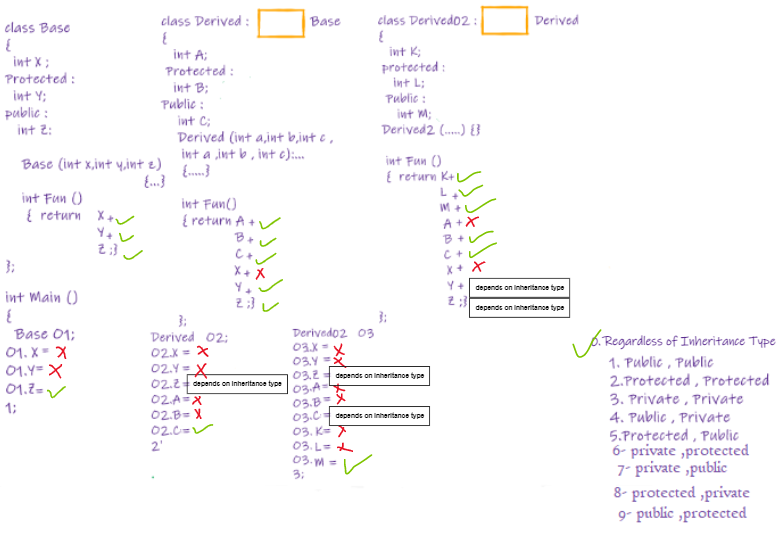 class Base
{
int X ;
Protected :
int Y;
public :
int Z:
Base (int x,int y,int z)
{...}
int Fun ()
{ return X +
Y +
Z ;}
};
int Main ()
{
Base O1;
O1. X =
O1.Y=
O1.Z=
1;
class Derived : Base
{
int A;
Protected :
int B;
Public :
int C;
Derived (int a,int b,int c ,
int a ,int b , int c):...
{.....}
int Fun()
{ return A +
B +
C +
X +
Y +
Z ;}
};
Derived O2;
O2.X =
O2.Y =
O2.Z = depends on Inheritance type
O2.A =
O2.B =
O2.C=
2'
class Derived02 : Derived
{
int K;
protected :
int L;
Public :
int M;
Derived2 (.....) {}
int Fun ()
{ return K+
L +
M +
A +
B +
C +
X +
Y + depends on Inheritance type
Z ;} depends on Inheritance type
};
Derived02 O3
O3.X =
O3.Y =
O3.Z = depends on Inheritance type
O3.A=
O3.B=
O3.C= depends on Inheritance type
O3.K=
O3.L=
O3.M =
3;
0.Regardless of Inheritance Type
1. Public , Public
2.Protected , Protected
3. Private , Private
4. Public , Private
5.Protected , Public
6- private ,protected
7- private ,public
8- protected ,private
9- public ,protected